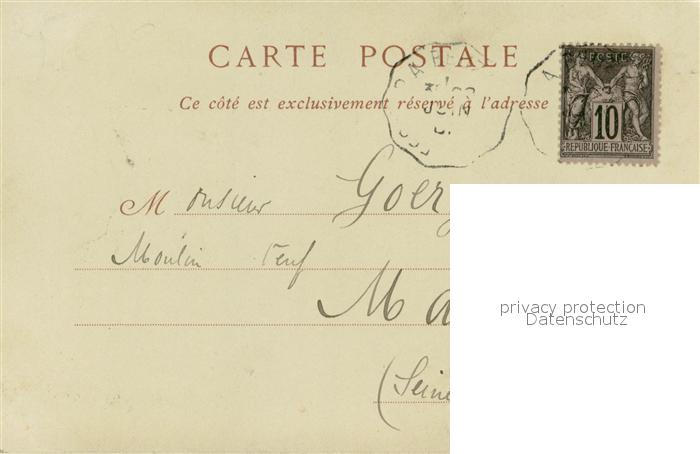 CARTE POSTALE
Ce côté est exclusivement réservé à l'adresse
POSTE
10
REPUBLIQUE FRANÇAISE
JUIN
Monsieur Goerg
Moulin Neuf
Ma
(Seine
privacy protection
Datenschutz